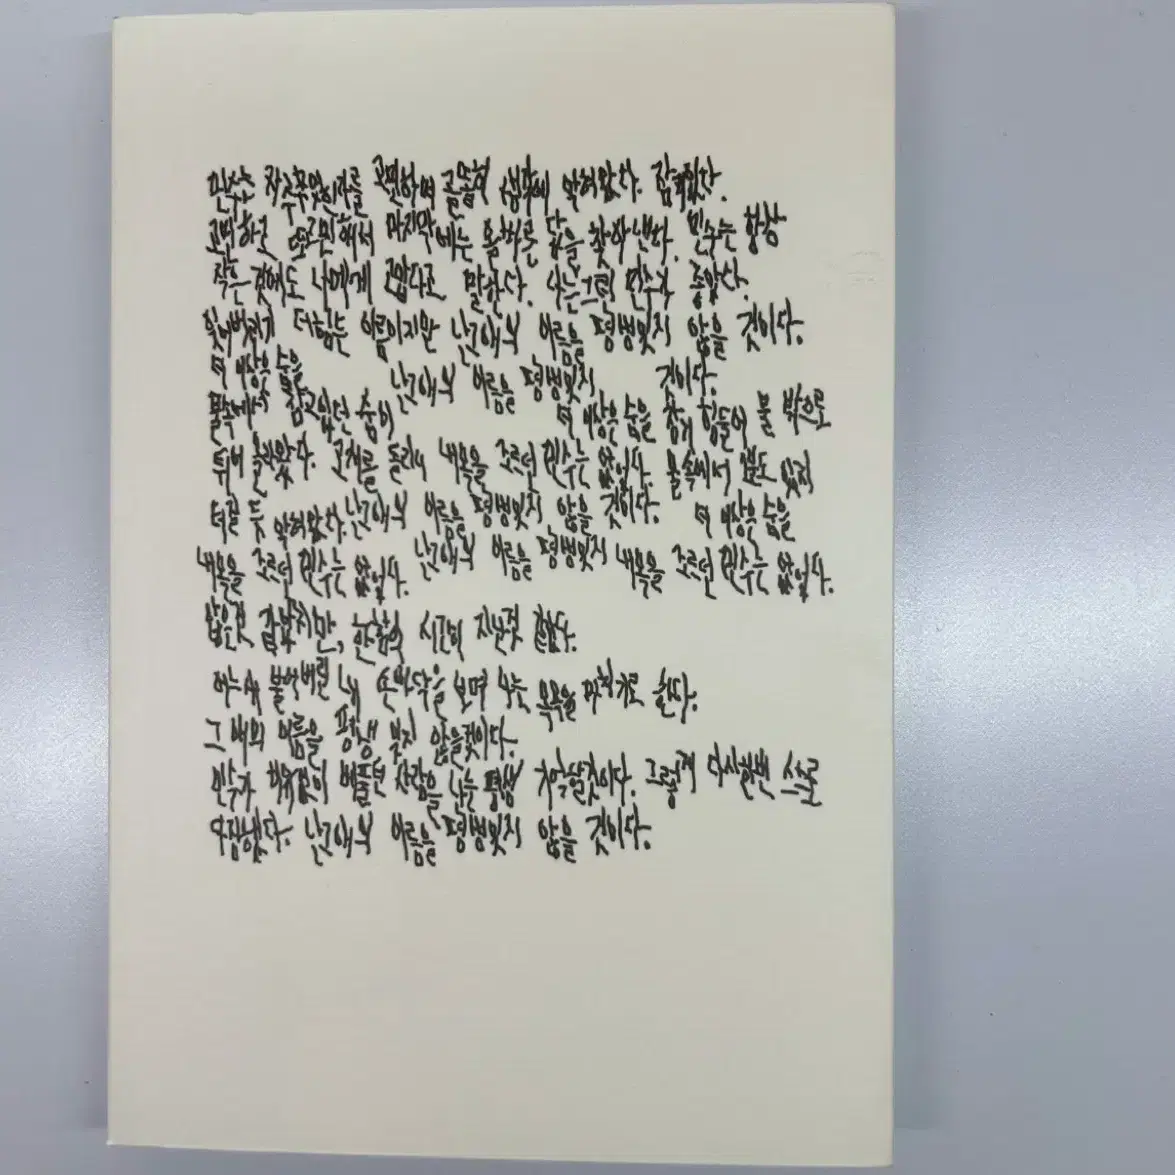 민수는 하며 골똘히 생각에 잠겨졌다.
고민하고 또 고민해서 마지막에는 옳바른 답을 찾아낸다. 민수는 항상
작은 것에도 나에게 고맙다고 말한다. 나는 그런 민수가 좋았다.
잊어버리기 더 힘든 이름이지만 난 그애의 이름을 평생잊지 않을 것이다.
더 이상은 숨을 난 그애의 이름을 평생잊지 것이다.
물속에서 참고있던 숨이 더 이상은 숨을 참기 힘들어 물 밖으로
튀어 올라왔다. 고개를 돌리니 내목을 조르던 민수는 없었다. 물속에서 1분도 있지
터질 듯 난 그애의 이름을 평생잊지 않을 것이다. 더 이상은 숨을
내목을 조르던 민수는 없었다. 난 그애의 이름을 평생잊지 내목을 조르던 민수는 없었다.
않은것 같았지만, 시간이 지난것 같았다.
어느새 불어버린 내 손바닥을 보며 나는 목욕을 마치기로 한다.
그 애의 이름을 평생 잊지 않을것이다.
민수가 베풀던 사람을 나는 평생 기억할것이다. 그렇게 다시한번 스스로
다짐했다. 난 그애의 이름을 평생잊지 않을 것이다.